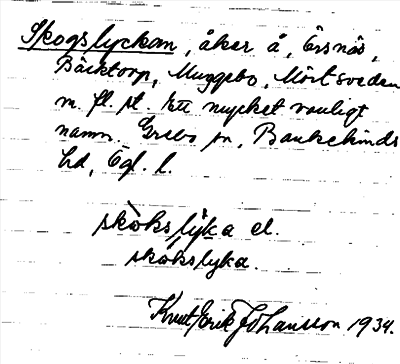 Skogslyckan, åker å, Örsnäs,
Bäcktorp, Muggebo, Mörtsveden
m. fl. st. Ett mycket vanligt
namn. Grebo sn, Bankekinds
hd, Ögl. l.
skòkslỳka el.
skòkslyka.
Knut Erik Johansson 1934.